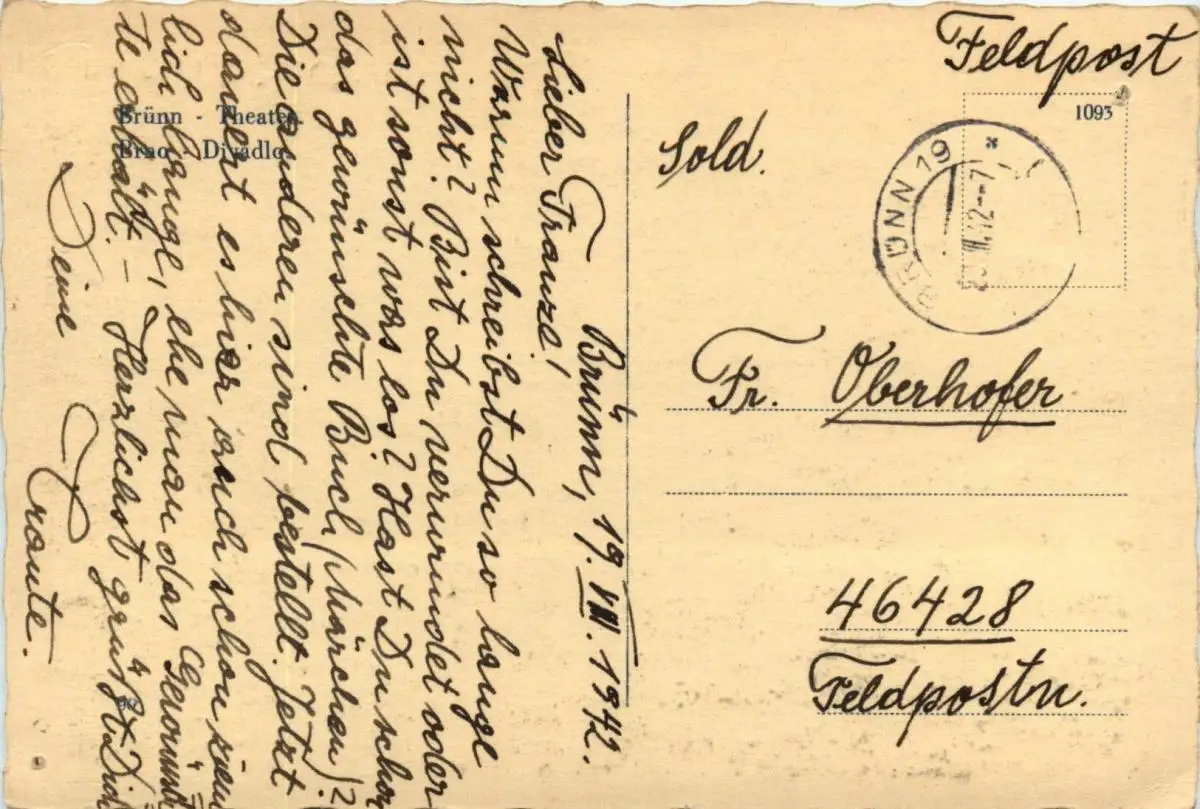 Feldpost
1093
Sold.
BRÜNN 19
Fr. Oberhofer
46428
Feldpostn.
Brünn - Theater.
Brno - Divadlo.
Brünn, 19. VIII. 1942.
Lieber Franze!
Warum schreibst Du so lange
nicht? Bist Du verwundet oder
ist sonst was los? Hast Du schon
das gewünschte Buch (Märchen)?
Die anderen sind bestellt. Jetzt
dauert es hier auch schon ziem
lich lange, ehe man das Gewünsch
te erhält. – Herzlichst grüßt Dich
Deine Traute.